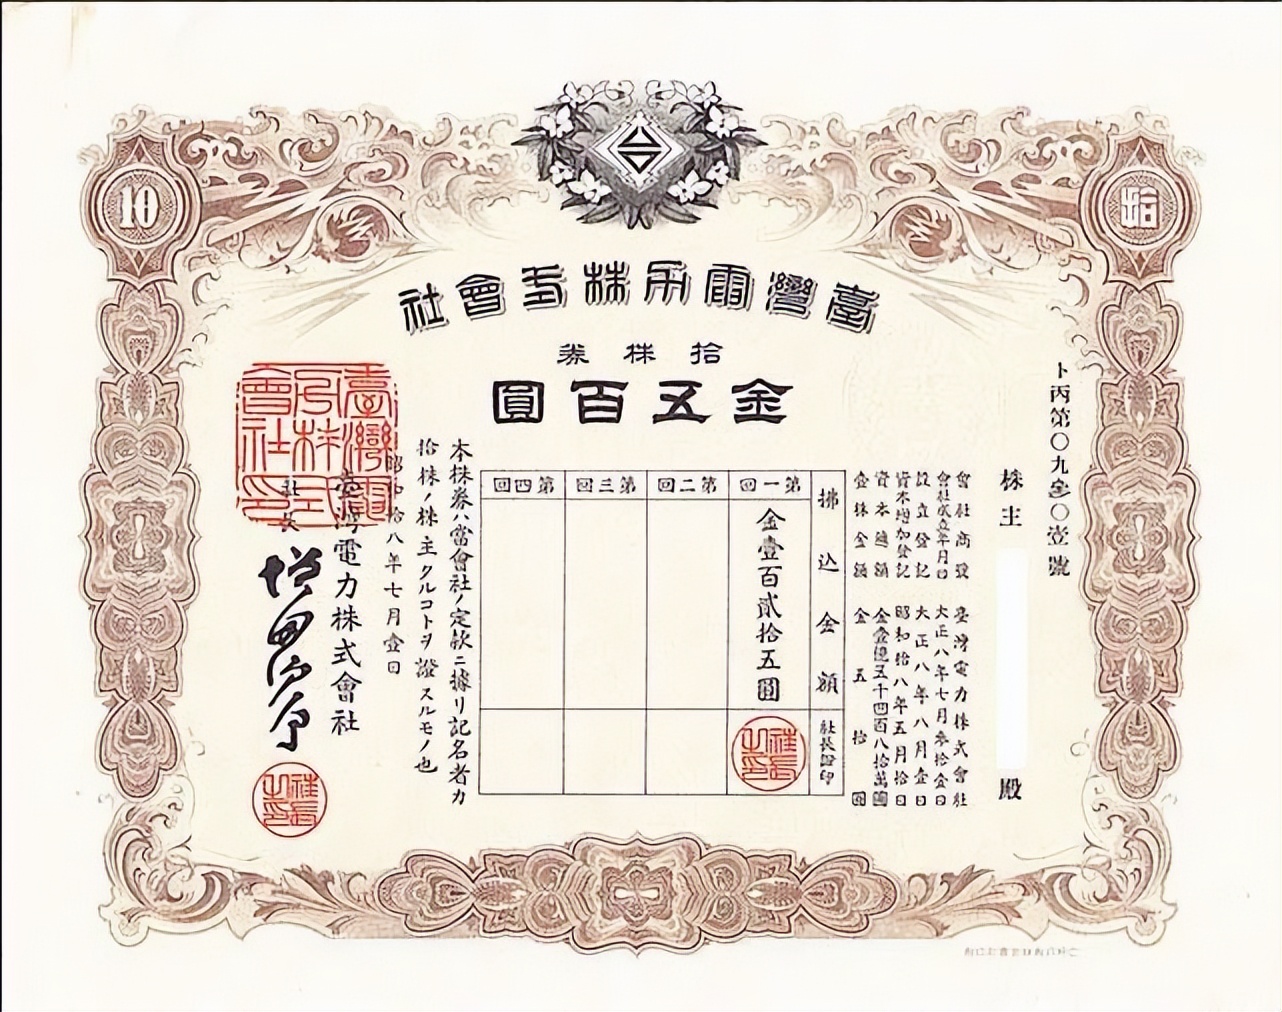 臺灣電力株式會社
拾株券
金五百圓
10
拾
ト丙第〇九參〇壹號
株主
殿
會社商號 臺灣電力株式會社
會社成立年月日 大正八年七月參拾壹日
設立登記 大正八年八月壹日
資本增加登記 昭和拾八年五月拾日
資本總額 金壹億五千四百八拾萬圓
壹株金額 金五拾圓
拂込金額
社長證印
第一回
金壹百貳拾五圓
社長之印
第二回
第三回
第四回
本株券ハ當會社ノ定款ニ據リ記名者カ
拾株ノ株主タルコトヲ證スルモノ也
昭和拾八年七月壹日
臺灣電力株式會社
社長
臺灣電力株式會社印
社長之印